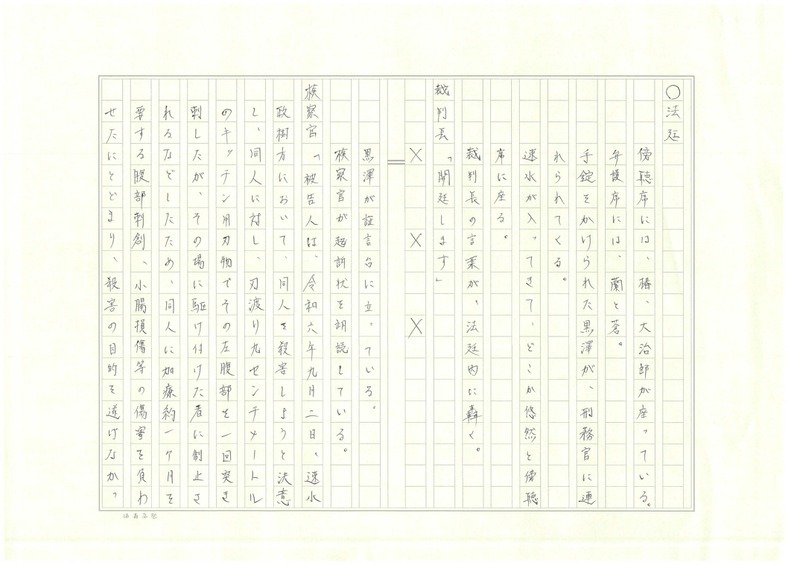 ○法廷
傍聴席には、椿、大治郎が座っている。
弁護席には、蘭と蒼。
手錠をかけられた黒澤が、刑務官に連
れられてくる。
速水が入ってきて、どこか悠然と傍聴
席に座る。
裁判長の言葉が、法廷内に轟く。
裁判長「開廷します」
× × ×
黒澤が証言台に立っている。
検察官が起訴状を朗読している。
検察官「被告人は、令和六年九月二日、速水
政樹方において、同人を殺害しようと決意
し、同人に対し、刃渡り九センチメートル
のキッチン用刃物でその左腹部を一回突き
刺したが、その場に駆け付けた者に制止さ
れるなどしたため、同人に加療約一ケ月を
要する腹部刺創、小腸損傷等の傷害を負わ
せたにとどまり、殺害の目的を遂げなかっ